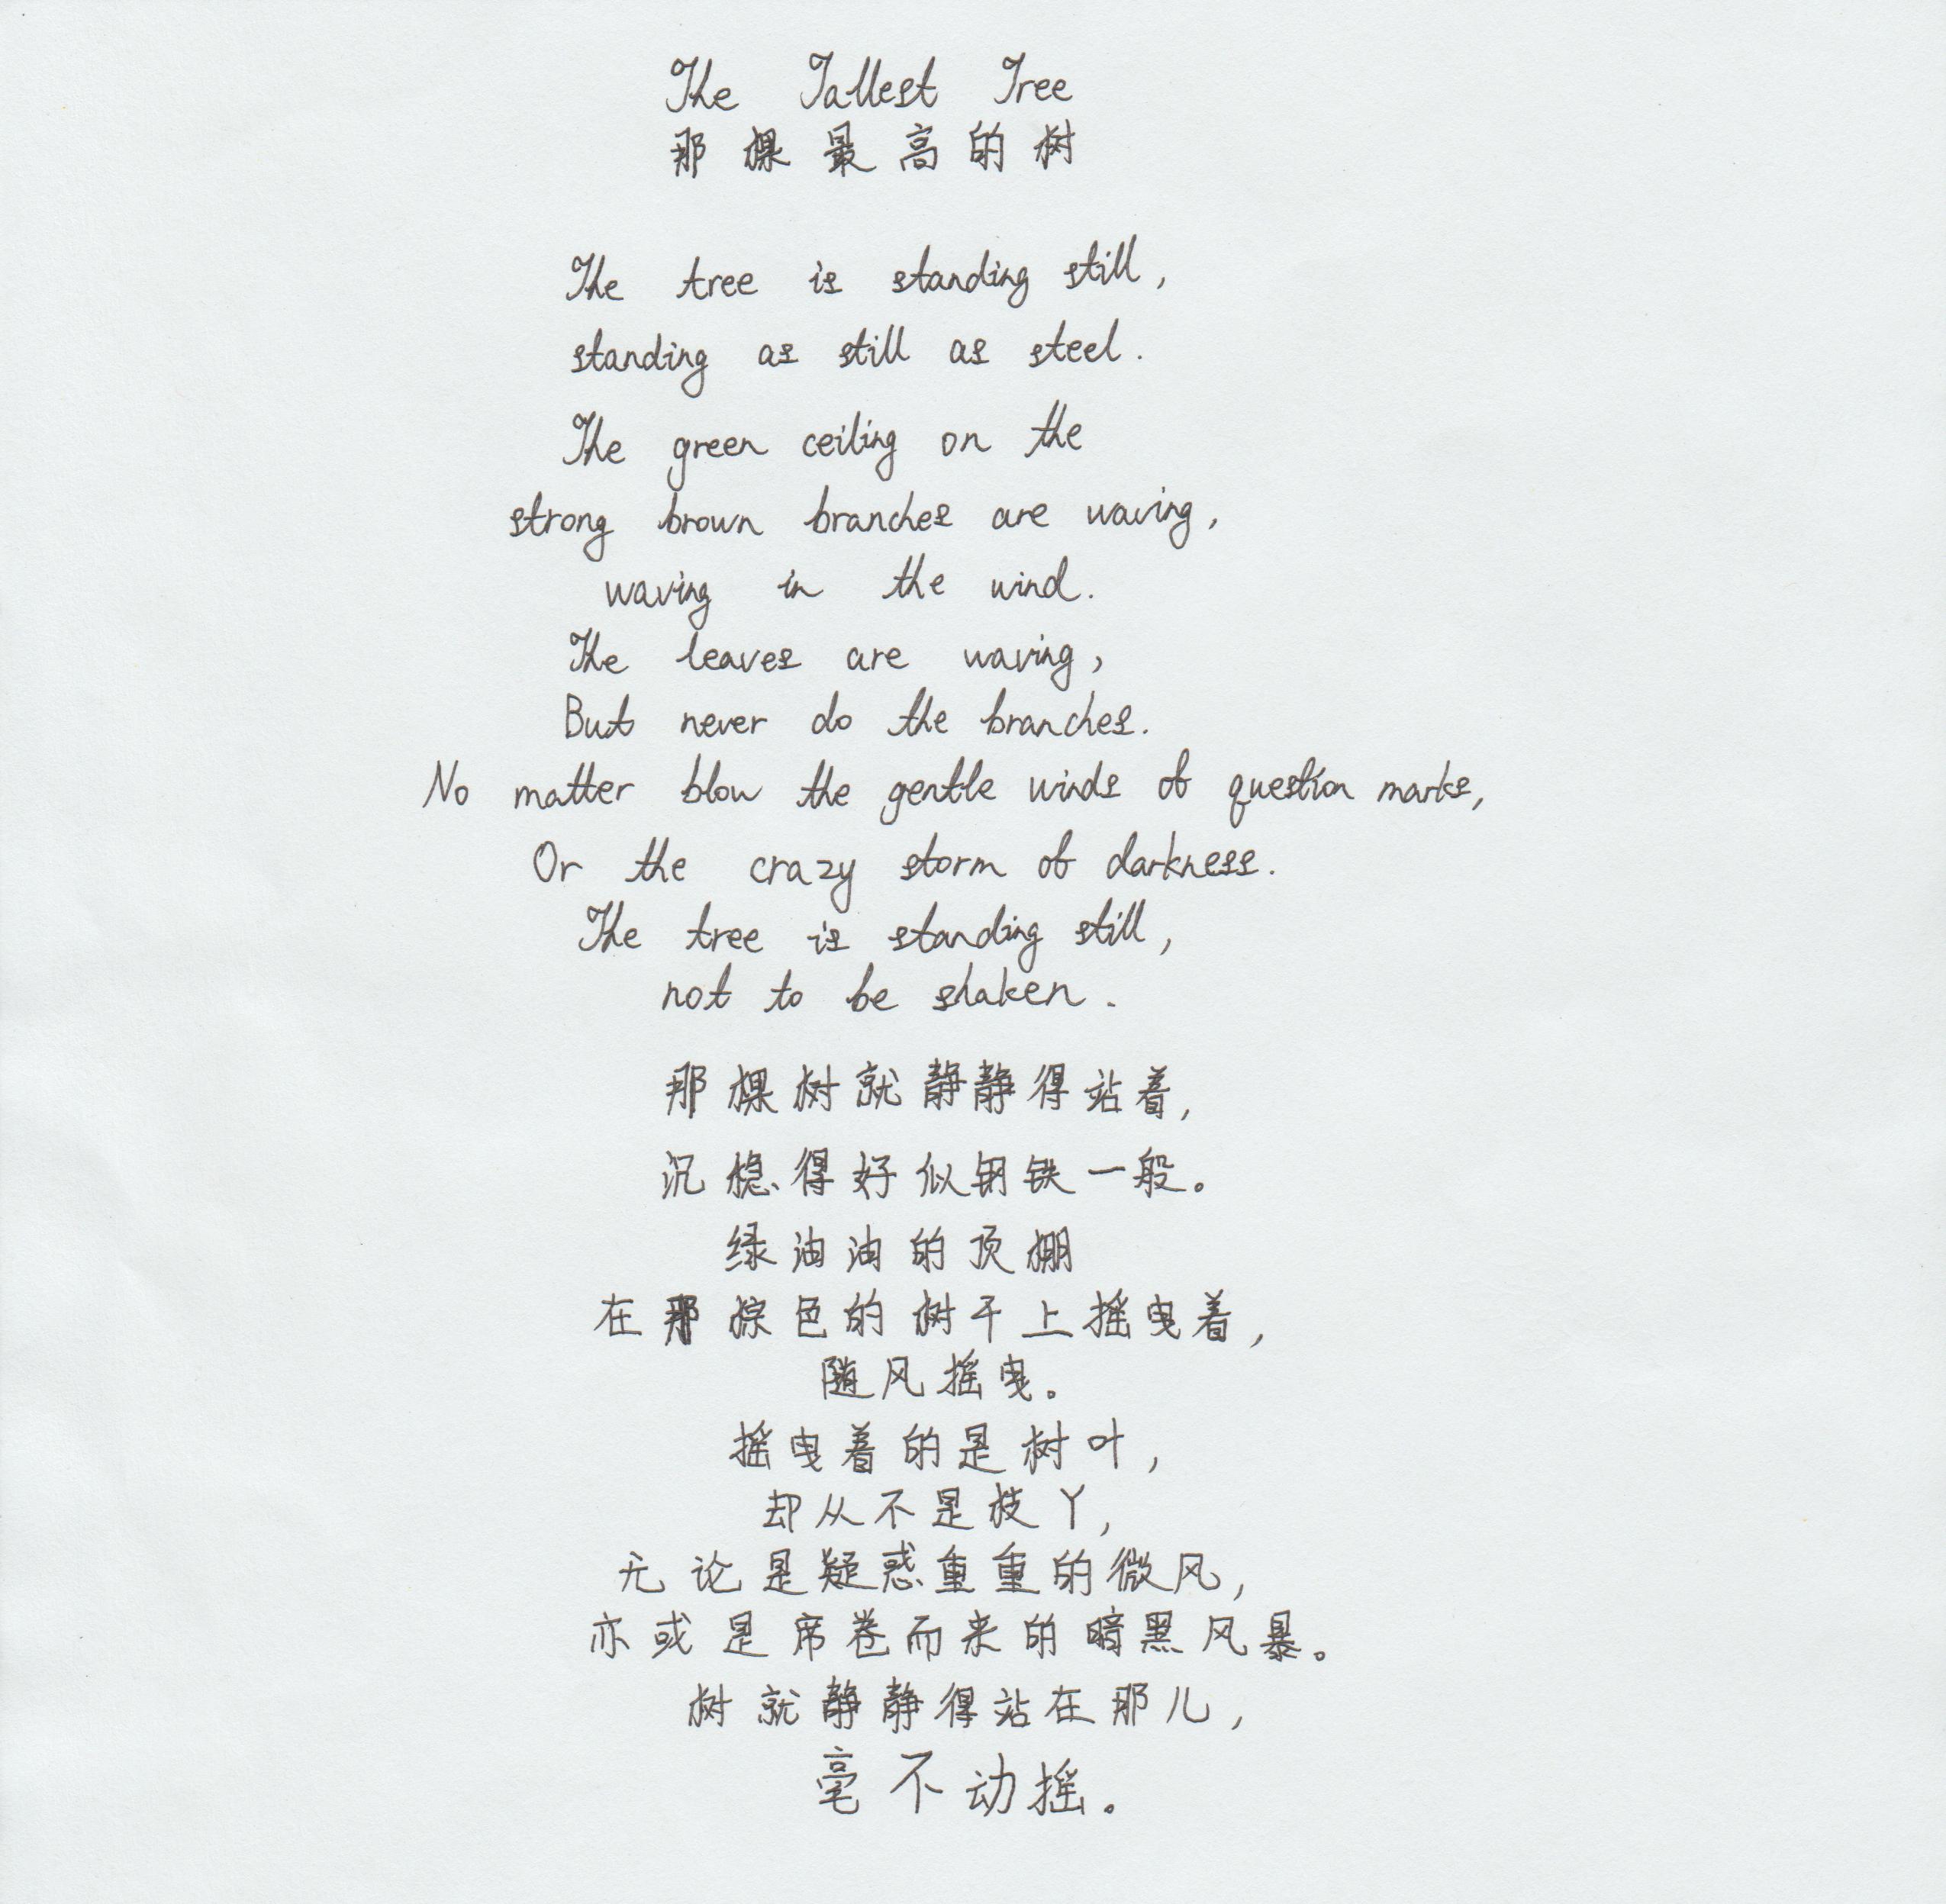 The Tallest Tree
那棵最高的树
The tree is standing still,
standing as still as steel.
The green ceiling on the
strong brown branches are waving,
waving in the wind.
The leaves are waving,
But never do the branches.
No matter blow the gentle winds of question marks,
Or the crazy storm of darkness.
The tree is standing still,
not to be shaken.
那棵树就静静得站着,
沉稳得好似钢铁一般。
绿油油的顶棚
在那棕色的树干上摇曳着,
随风摇曳。
摇曳着的是树叶,
却从不是枝丫,
无论是疑惑重重的微风,
亦或是席卷而来的暗黑风暴。
树就静静得站在那儿,
毫不动摇。